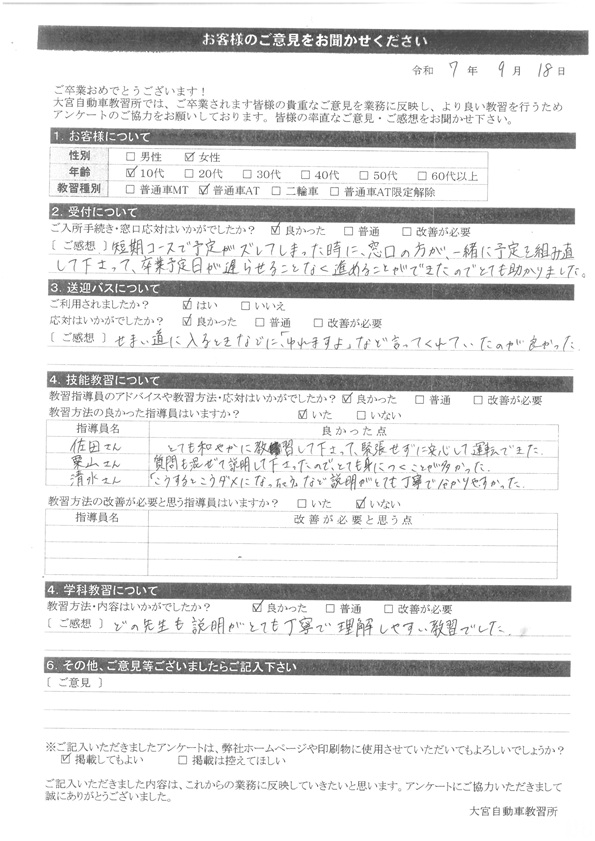 お客様のご意見をお聞かせください
令和 7 年 9 月 18 日
ご卒業おめでとうございます！
大宮自動車教習所では、ご卒業されます皆様の貴重なご意見を業務に反映し、より良い教習を行うため
アンケートのご協力をお願いしております。皆様の率直なご意見・ご感想をお聞かせ下さい。
1. お客様について
性別 □ 男性 ☑ 女性
年齢 ☑ 10代 □ 20代 □ 30代 □ 40代 □ 50代 □ 60代以上
教習種別 □ 普通車MT ☑ 普通車AT □ 二輪車 □ 普通車AT限定解除
2. 受付について
ご入所手続き・窓口応対はいかがでしたか？ ☑ 良かった □ 普通 □ 改善が必要
〔 ご感想 〕 短期コースで予定がズレてしまった時に、窓口の方が、一緒に予定を組み直
して下さって、卒業予定日が遅らせることなく進めることができたのでとても助かりました。
3. 送迎バスについて
ご利用されましたか？ ☑ はい □ いいえ
応対はいかがでしたか？ ☑ 良かった □ 普通 □ 改善が必要
〔 ご感想 〕 せまい道に入るときなどに、「ゆれますよ」など言ってくれていたのが良かった。
4. 技能教習について
教習指導員のアドバイスや教習方法・応対はいかがでしたか？ ☑ 良かった □ 普通 □ 改善が必要
教習方法の良かった指導員はいますか？ ☑ いた □ いない
指導員名 良かった点
佐田さん とても和やかに教習して下さって、緊張せずに安心して運転できた。
栗山さん 質問も混ぜて説明して下さったので、とても身につくことが多かった。
清水さん 「こうするとこうダメになっちゃう」など説明がとても丁寧で分かりやすかった。
教習方法の改善が必要と思う指導員はいますか？ □ いた ☑ いない
指導員名 改善が必要と思う点
4. 学科教習について
教習方法・内容はいかがでしたか？ ☑ 良かった □ 普通 □ 改善が必要
〔 ご感想 〕 どの先生も説明がとても丁寧で理解しやすい教習でした。
6. その他、ご意見等ございましたらご記入下さい
〔 ご意見 〕
※ご記入いただきましたアンケートは、弊社ホームページや印刷物に使用させていただいてもよろしいでしょうか？
☑ 掲載してもよい □ 掲載は控えてほしい
ご記入いただきました内容は、これからの業務に反映していきたいと思います。アンケートにご協力いただきまして
誠にありがとうございました。
大宮自動車教習所